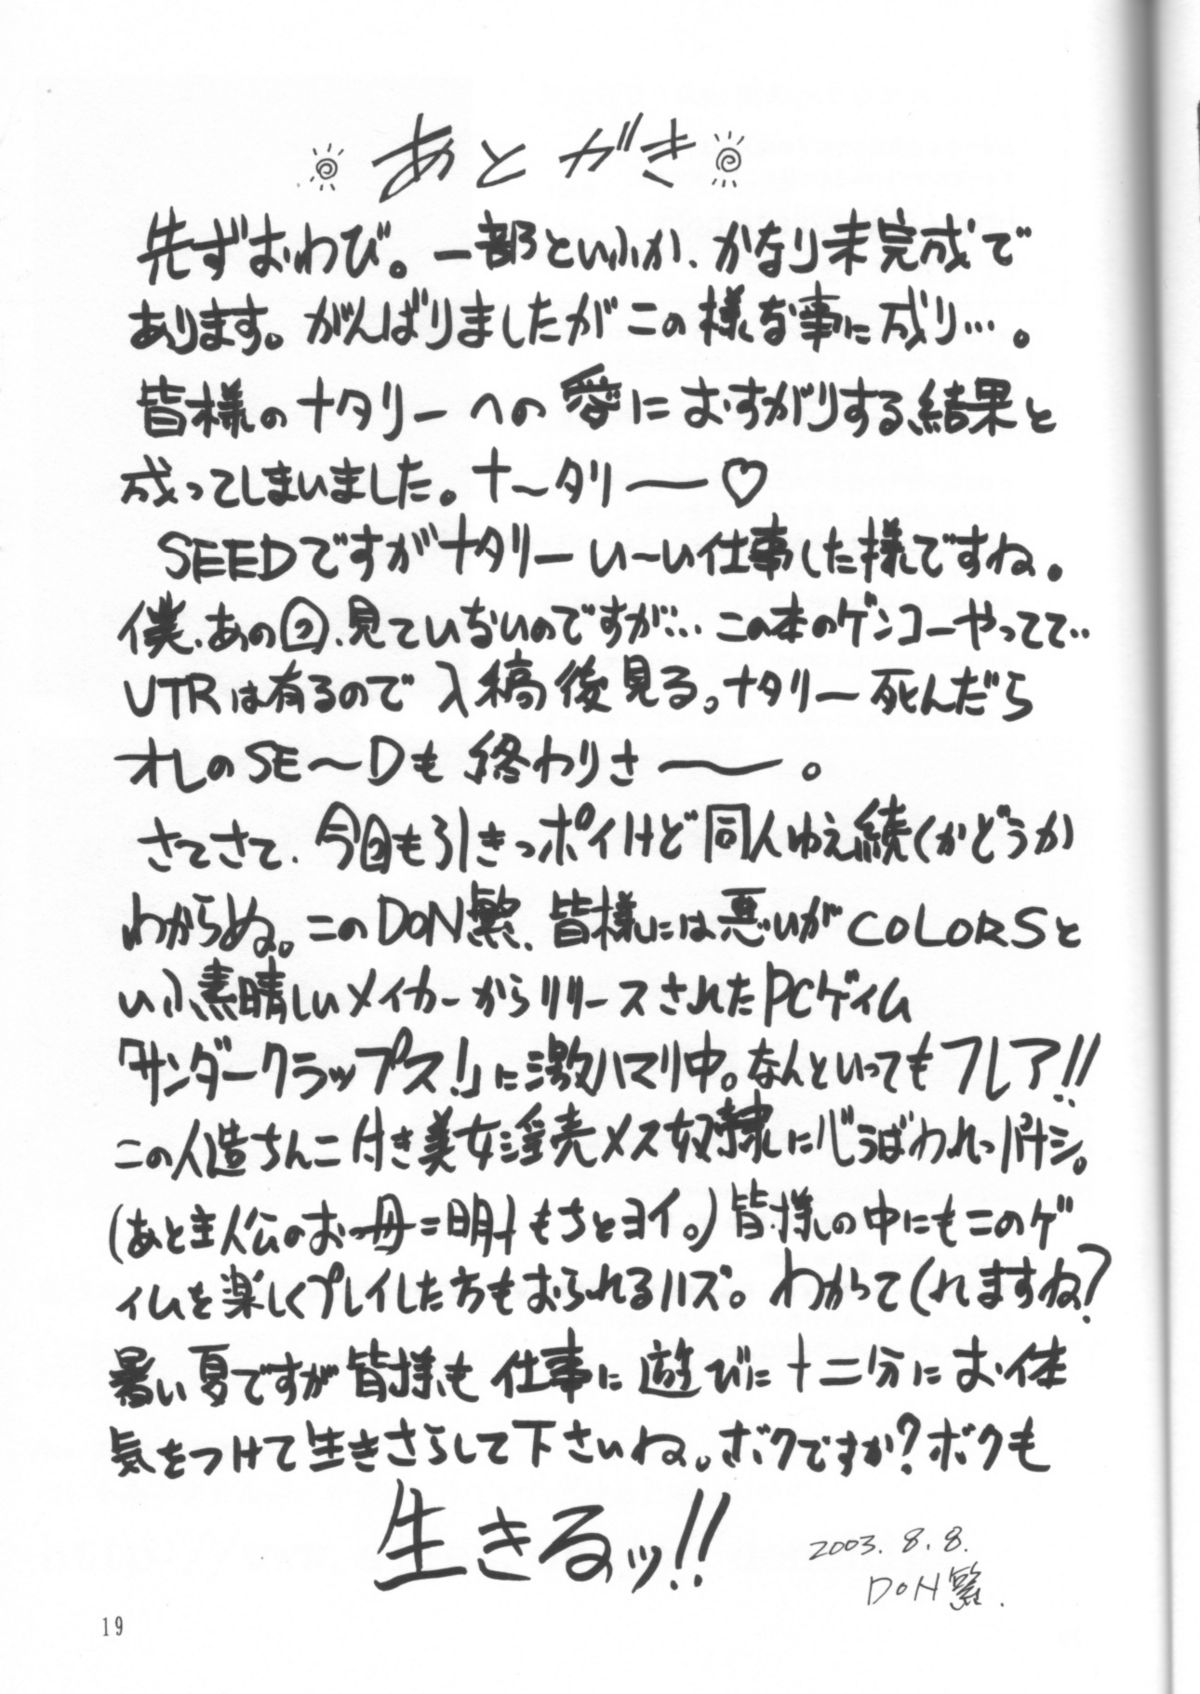 あとがき
先ずおわび。一部といふか、かなり未完成で
あります。がんばりましたがこの様な事に成り…。
皆様のナタリーへの愛におすがりする結果と
成ってしまいました。ナ〜タリー♡
SEEDですがナタリーい〜い仕事した様ですね。
僕、あの回、見ていないのですが…この本のゲンコーやってて‥
VTRは有るので入稿後見る。ナタリー死んだら
オレのSE〜Dも終わりさー。
さてさて、今回も引きっポイけど同人ゆえ続くかどうか
わからぬ。このDON繁、皆様には悪いがCOLORSと
いふ素晴しいメイカーからリリースされたPCゲイム
「サンダークラップス!」に激ハマリ中。なんといってもフレア!!
この人造ちんこ付き美女淫売メス奴隷に心うばわれっパナシ。
(あと主人公のお母ニ明もちとヨイ。)皆様の中にもこのゲ
イムを楽しくプレイした方もおられるハズ。わかってくれますね?
暑い夏ですが皆様も仕事に遊びに十二分にお体
気をつけて生きさらして下さいね。ボクですか?ボクも
生きるッ!!
2003.8.8.
DON繁.
19